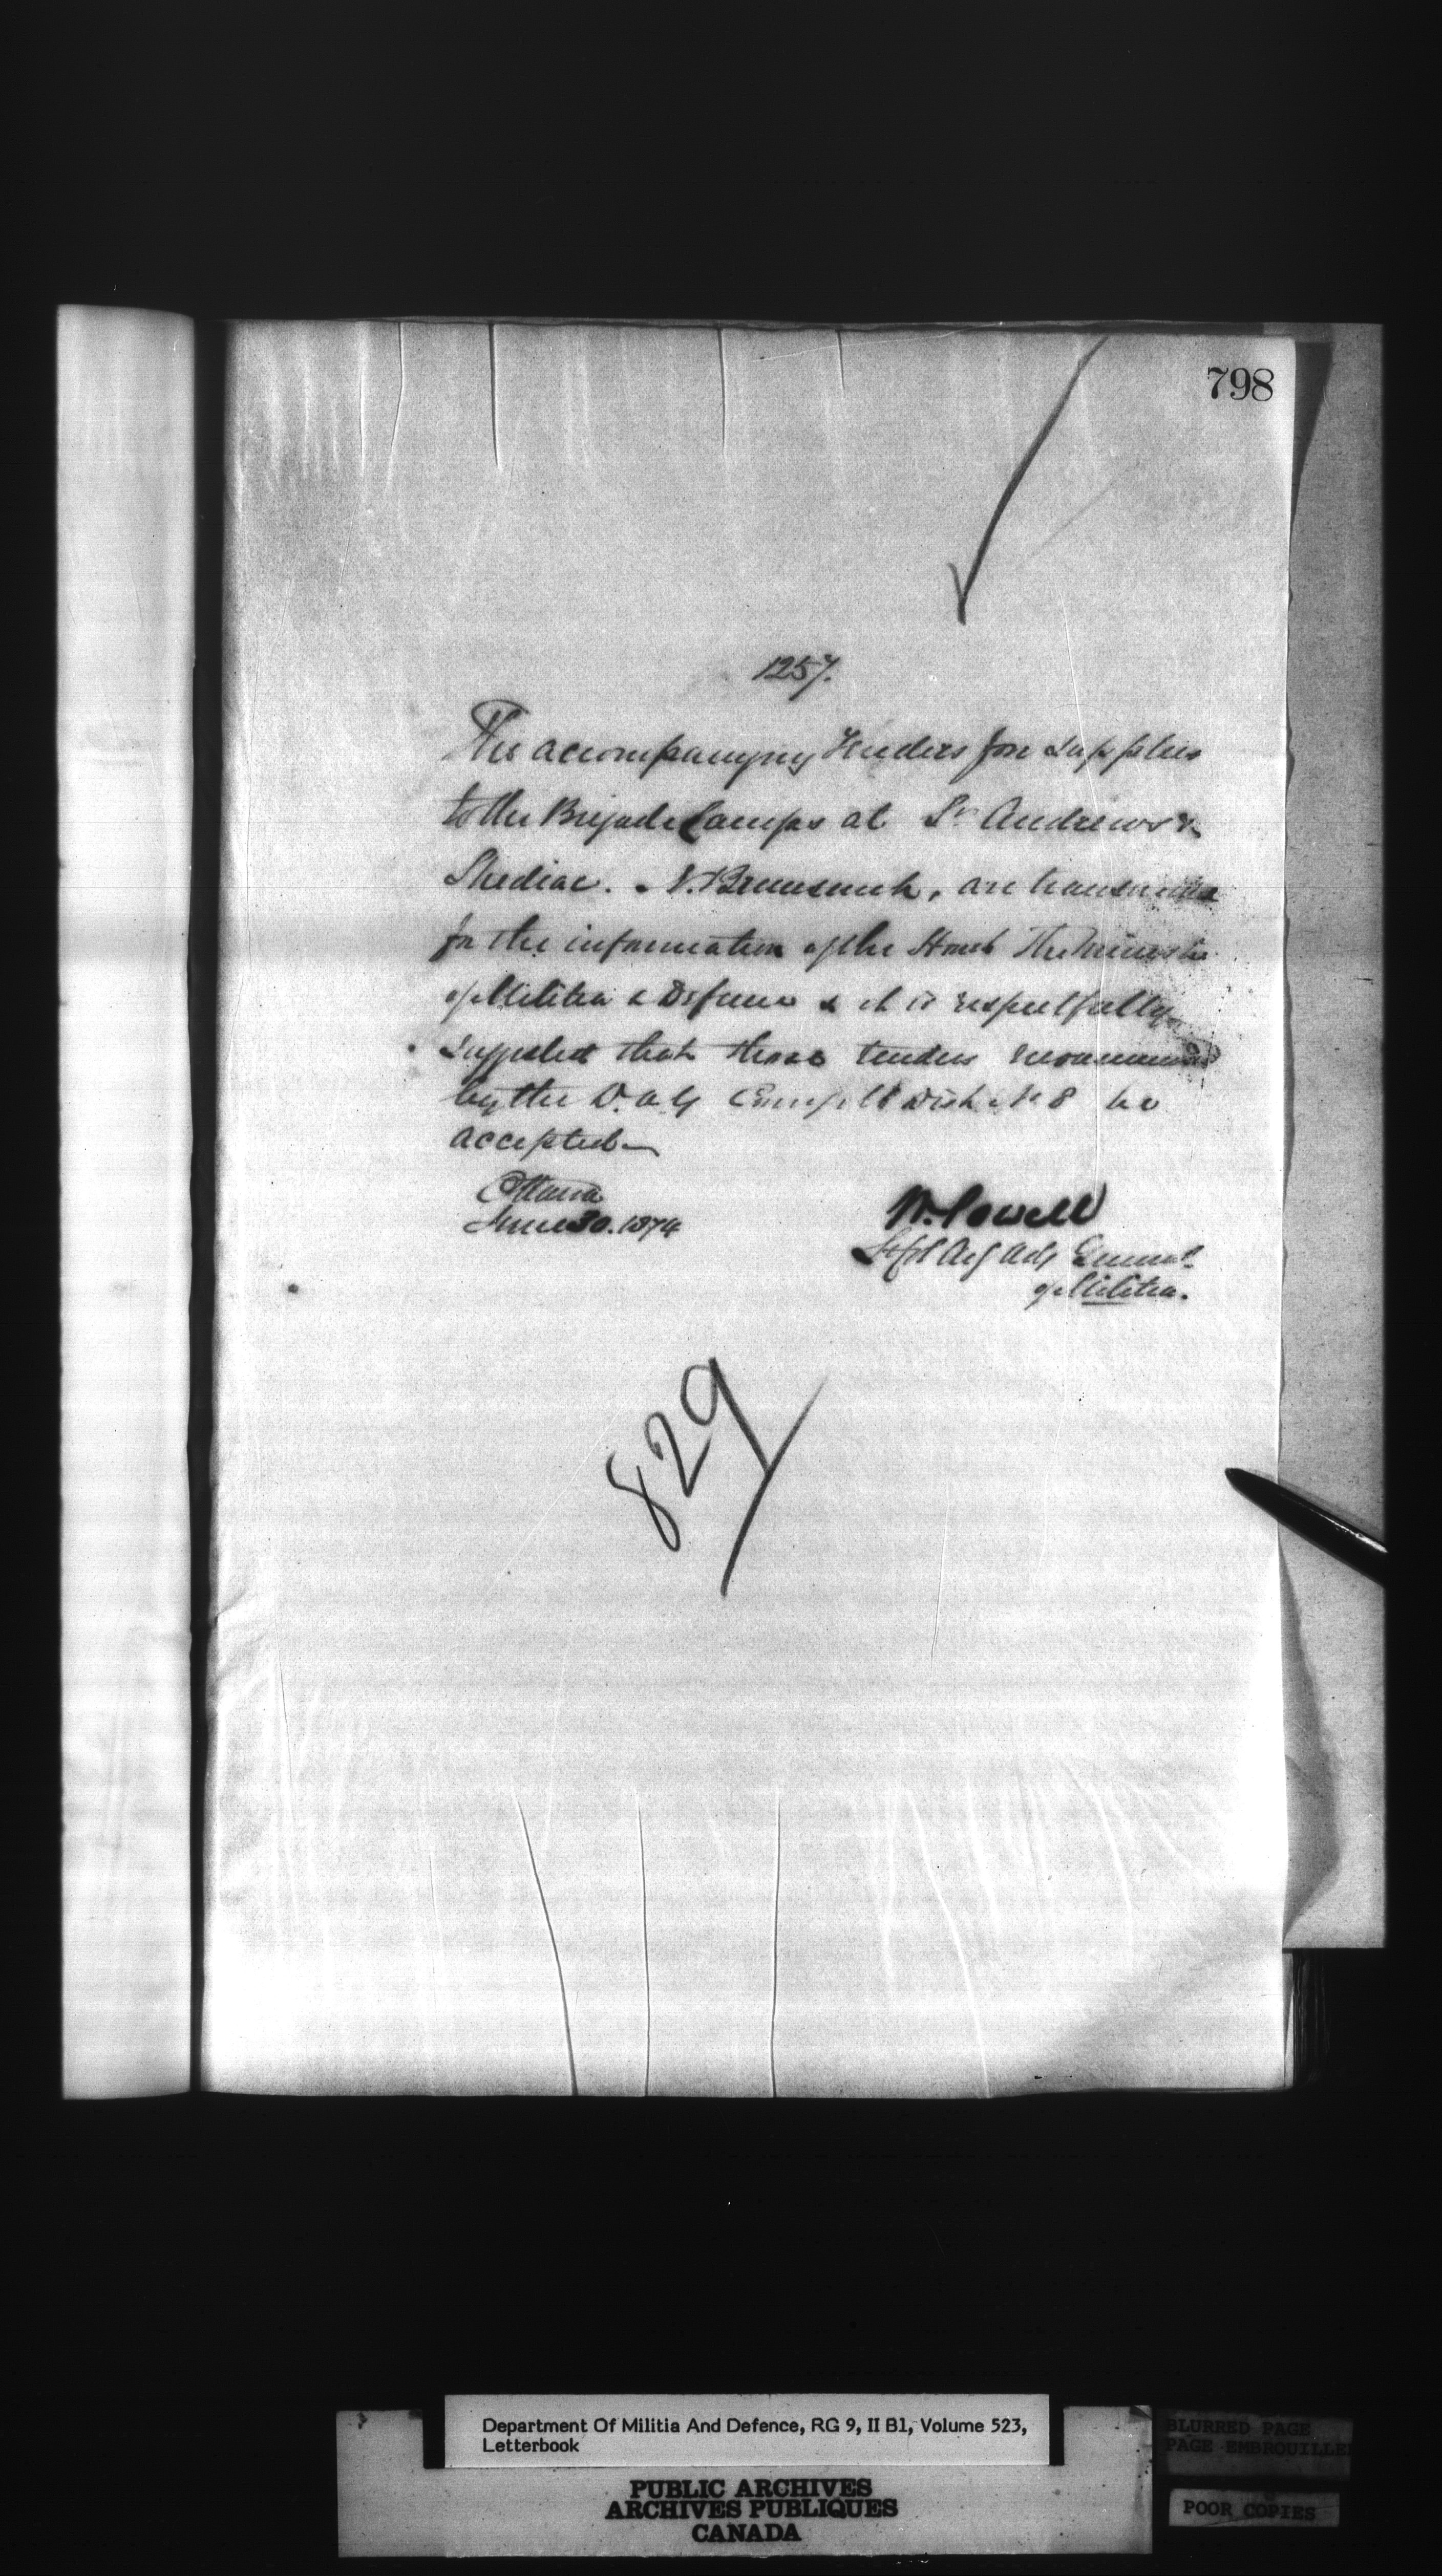 798
1257.
The accompanying Tenders for supplies
to the Brigade Camps at St Andrews &
Shediac. N. Brunswick, are transmitted
for the information of the Honble The Minister
of Militia & Defence & it is respectfully
suggested that those tenders recommended
by the D.A.G. Comg Mil Dist. No 8 be
accepted
Ottawa
June 30. 1874
W. Powell
Lt Col Actg Adjt General
of Militia.
829
Department Of Militia And Defence, RG 9, II B1, Volume 523,
Letterbook
PUBLIC ARCHIVES
ARCHIVES PUBLIQUES
CANADA
BLURRED PAGE
PAGE EMBROUILLE
POOR COPIES